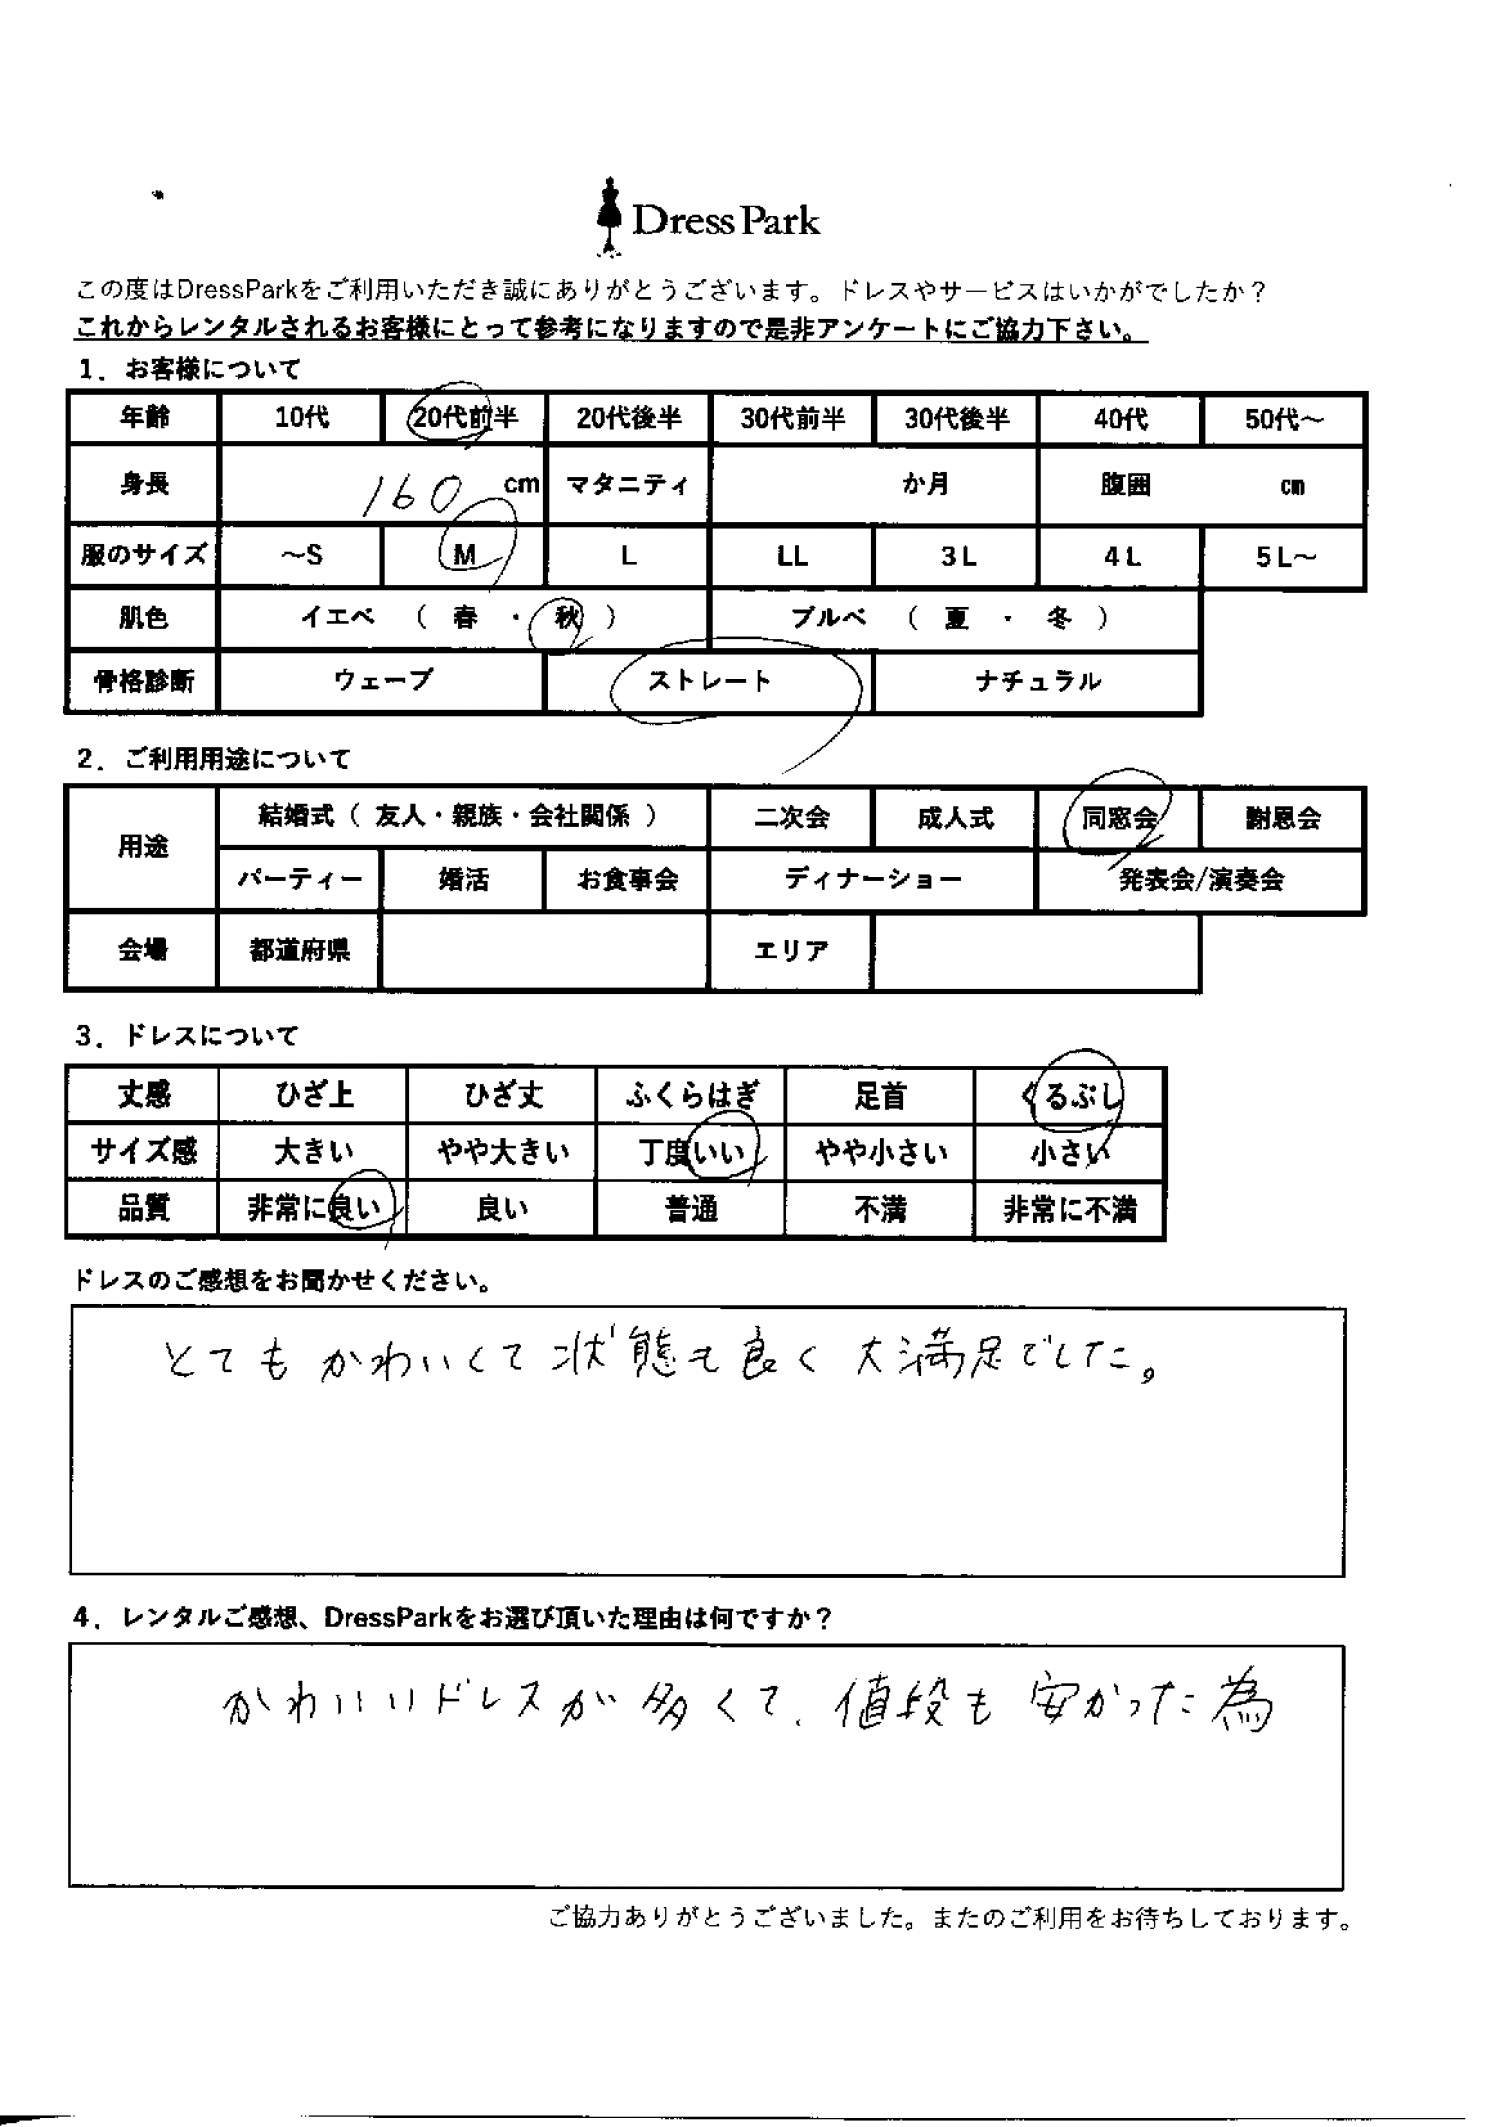 Dress Park
この度はDressParkをご利用いただき誠にありがとうございます。ドレスやサービスはいかがでしたか？
これからレンタルされるお客様にとって参考になりますので是非アンケートにご協力下さい。
1．お客様について
年齢 10代 20代前半 20代後半 30代前半 30代後半 40代 50代～
身長 160 cm マタニティ か月 腹囲 cm
服のサイズ ～S M L LL 3L 4L 5L～
肌色 イエベ （ 春 ・ 秋 ） ブルベ （ 夏 ・ 冬 ）
骨格診断 ウェーブ ストレート ナチュラル
2．ご利用用途について
用途 結婚式（ 友人・親族・会社関係 ） 二次会 成人式 同窓会 謝恩会
パーティー 婚活 お食事会 ディナーショー 発表会/演奏会
会場 都道府県 エリア
3．ドレスについて
丈感 ひざ上 ひざ丈 ふくらはぎ 足首 くるぶし
サイズ感 大きい やや大きい 丁度いい やや小さい 小さい
品質 非常に良い 良い 普通 不満 非常に不満
ドレスのご感想をお聞かせください。
とてもかわいくて状態も良く大満足でした。
4．レンタルご感想、DressParkをお選び頂いた理由は何ですか？
かわいいドレスが多くて、値段も安かった為
ご協力ありがとうございました。またのご利用をお待ちしております。